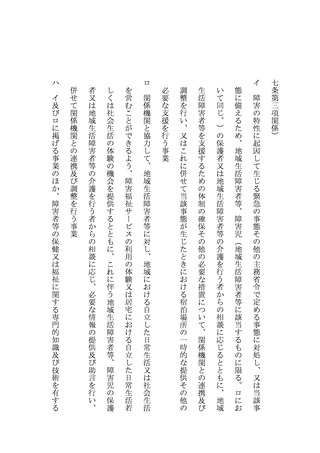 七条第三項関係）
イ　障害の特性に起因して生じる緊急の事態その他の主務省令で定める事態に対処し、又は当該事
態に備えるため、地域生活障害者等、障害児（地域生活障害者等に該当するものに限る。ロにお
いて同じ。）の保護者又は地域生活障害者等の介護を行う者からの相談に応じるとともに、地域
生活障害者等を支援するための体制の確保その他の必要な措置について、関係機関との連携及び
調整を行い、又はこれに併せて当該事態が生じたときにおける宿泊場所の一時的な提供その他の
必要な支援を行う事業
ロ　関係機関と協力して、地域生活障害者等に対し、地域における自立した日常生活又は社会生活
を営むことができるよう、障害福祉サービスの利用の体験又は居宅における自立した日常生活若
しくは社会生活の体験の機会を提供するとともに、これに伴う地域生活障害者等、障害児の保護
者又は地域生活障害者等の介護を行う者からの相談に応じ、必要な情報の提供及び助言を行い、
併せて関係機関との連携及び調整を行う事業
ハ　イ及びロに掲げる事業のほか、障害者等の保健又は福祉に関する専門的知識及び技術を有する